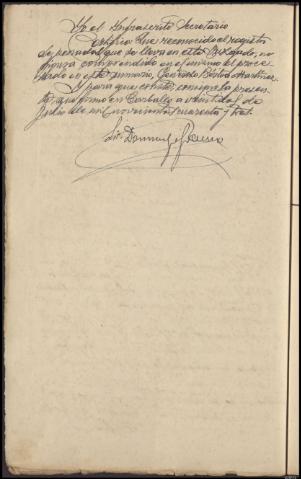 Yo el Infrascrito Secretario
Certifico: Que reconocido el registro
de penados que se lleva en este Juzgado, no
aparece comprendido en el mismo el proce
sado en este sumario, Gonzalo Martinez.
Y para que conste, consigno la presen-
te, que firmo en Carballo a veintidos de
Julio de mil novecientos cuarenta y tres.